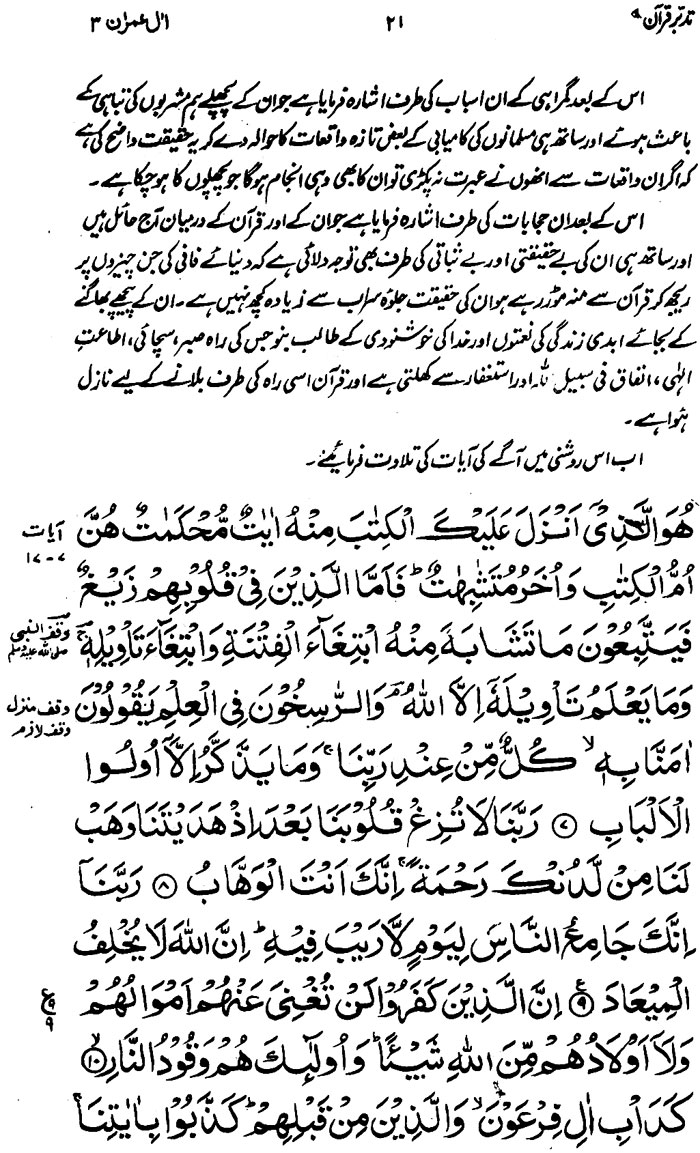 تدبر قرآن ۲۱ اٰل عمرٰن ۳
اس کے بعد گمراہی کے ان اسباب کی طرف اشارہ فرمایا ہے جو ان کے پچھلے ہم مشربوں کی تباہی کے
باعث ہوئے اور ساتھ ہی مسلمانوں کی کامیابی کے بعض تازہ واقعات کا حوالہ دے کر یہ حقیقت واضح کی ہے
کہ اگر ان واقعات سے انھوں نے عبرت نہ پکڑی تو ان کا بھی وہی انجام ہوگا جو پچھلوں کا ہو چکا ہے۔
اس کے بعد ان حجابات کی طرف اشارہ فرمایا ہے جو ان کے اور قرآن کے درمیان آج حائل ہیں
اور ساتھ ہی ان کی بے حقیقتی اور بے ثباتی کی طرف بھی توجہ دلائی ہے کہ دنیائے فانی کی جن چیزوں پر
ریجھ کر قرآن سے منہ موڑ رہے ہو ان کی حقیقت جلوۂ سراب سے زیادہ کچھ نہیں ہے۔ ان کے پیچھے بھاگنے
کے بجائے ابدی زندگی کی نعمتوں اور خدا کی خوشنودی کے طالب بنو جس کی راہ صبر، سچائی، اطاعتِ
الٰہی، انفاق فی سبیل اللہ اور استغفار سے کھلتی ہے اور قرآن اسی راہ کی طرف بلانے کے لیے نازل
ہوا ہے۔
اب اس روشنی میں آگے کی آیات کی تلاوت فرمائیے۔
هُوَ الَّذِیْۤ اَنْزَلَ عَلَیْكَ الْكِتٰبَ مِنْهُ اٰیٰتٌ مُّحْكَمٰتٌ هُنَّ آیات
اُمُّ الْكِتٰبِ وَاُخَرُ مُتَشٰبِهٰتٌ ؕ فَاَمَّا الَّذِیْنَ فِیْ قُلُوْبِهِمْ زَیْغٌ ۷-۱۷
فَیَتَّبِعُوْنَ مَا تَشَابَهَ مِنْهُ ابْتِغَآءَ الْفِتْنَةِ وَابْتِغَآءَ تَاْوِیْلِهٖ ۚ وقف النبی صلی اللہ علیہ وسلم
وَمَا یَعْلَمُ تَاْوِیْلَهٗۤ اِلَّا اللّٰهُ ۘ وَالرّٰسِخُوْنَ فِی الْعِلْمِ یَقُوْلُوْنَ وقف منزل وقف لازم
اٰمَنَّا بِهٖ ۙ كُلٌّ مِّنْ عِنْدِ رَبِّنَا ۚ وَمَا یَذَّكَّرُ اِلَّاۤ اُولُوا
الْاَلْبَابِ ۷ رَبَّنَا لَا تُزِغْ قُلُوْبَنَا بَعْدَ اِذْ هَدَیْتَنَا وَهَبْ
لَنَا مِنْ لَّدُنْكَ رَحْمَةً ۚ اِنَّكَ اَنْتَ الْوَهَّابُ ۸ رَبَّنَاۤ
اِنَّكَ جَامِعُ النَّاسِ لِیَوْمٍ لَّا رَیْبَ فِیْهِ ؕ اِنَّ اللّٰهَ لَا یُخْلِفُ
الْمِیْعَادَ ۹ اِنَّ الَّذِیْنَ كَفَرُوْا لَنْ تُغْنِیَ عَنْهُمْ اَمْوَالُهُمْ ع ۹ ۹
وَلَاۤ اَوْلَادُهُمْ مِّنَ اللّٰهِ شَیْـًٔا ؕ وَاُولٰٓئِكَ هُمْ وَقُوْدُ النَّارِ ۱۰
كَدَاْبِ اٰلِ فِرْعَوْنَ ۙ وَالَّذِیْنَ مِنْ قَبْلِهِمْ ؕ كَذَّبُوْا بِاٰیٰتِنَا ۚ